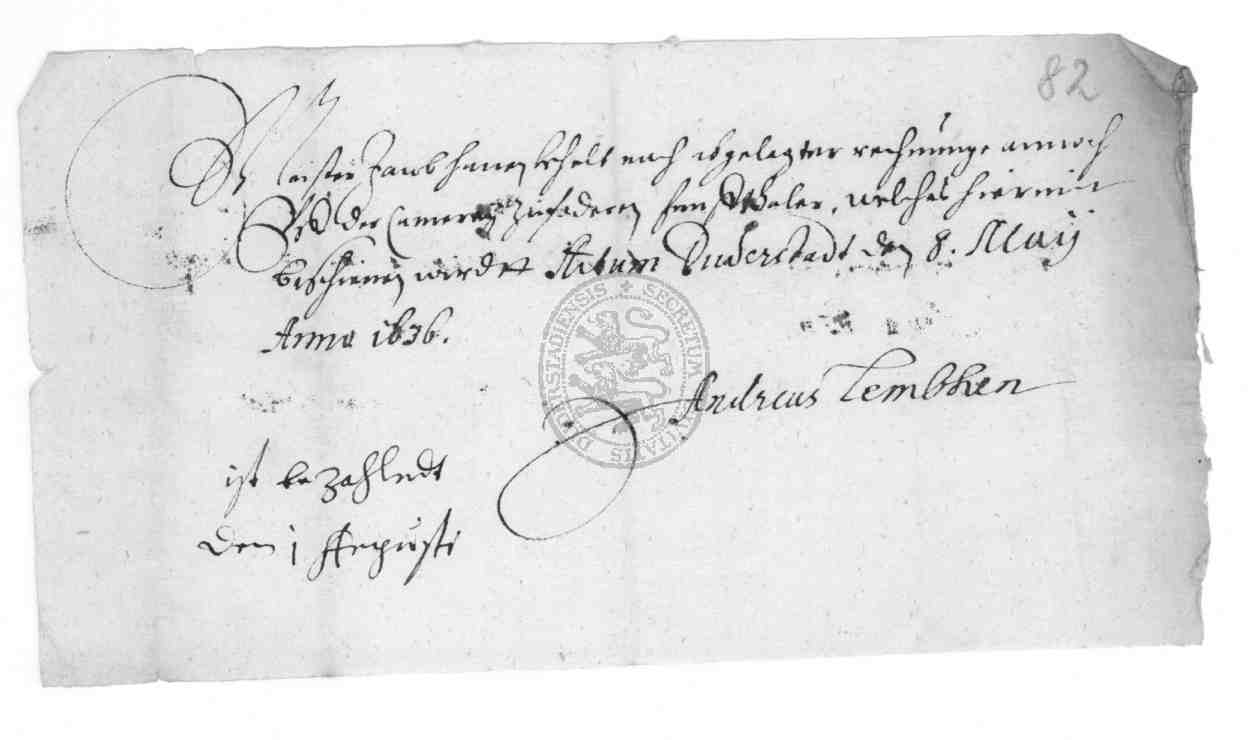 82
Meister Jacob hanen behelt nach abgelegter rechnunge annoch
der Camerey zufoderen funff thaler, welches hiermit
beschienen wirdt Actum Duderstadt den 8. Maij
Anno 1636.
Andreas Lembken
ist bezahledt
den 1 Augusti
SECRETUM CIVITATIS DUDERSTADIENSIS